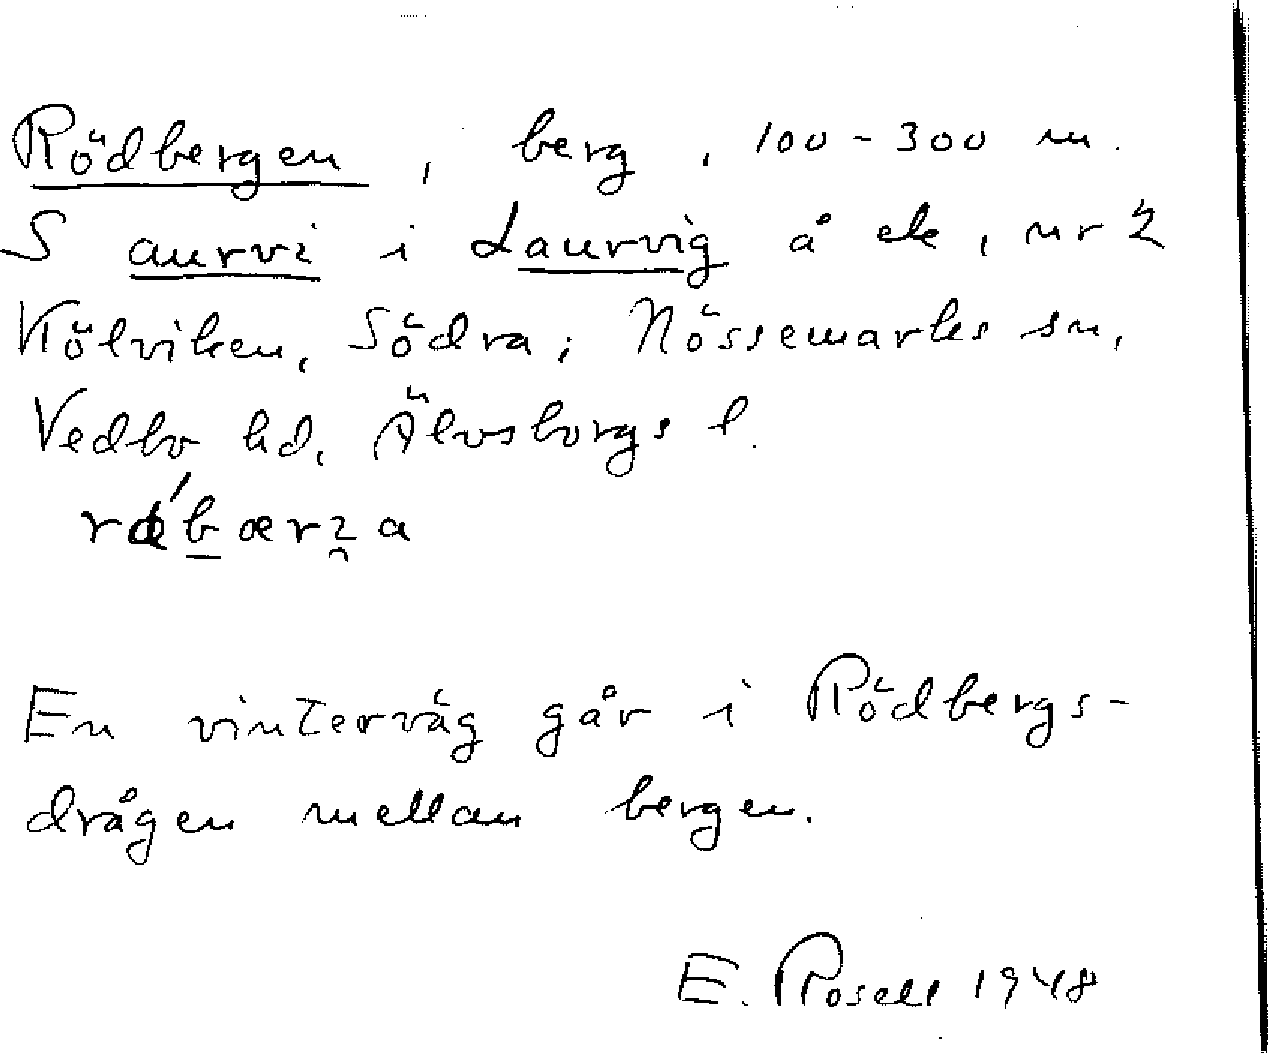 Rödbergen, berg, 100-300 m.
S aurvi i Laurvig å ek, nr 2
Kölviken, Södra; Nössemarks sn,
Vedbo hd, Älvsborgs l.
En vinterväg går i Rödbergs-
drågen mellan bergen.
E. Rosell 1948